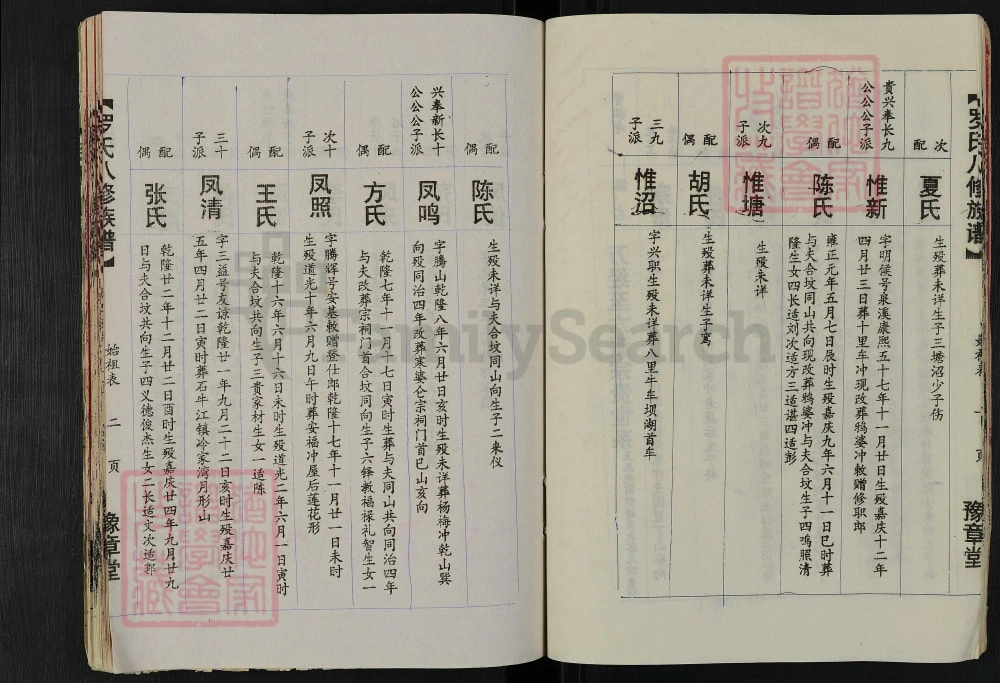 【罗氏八修族谱】
始祖表
页
豫章堂
次配
夏氏
生殁葬未详生子三塘沼少子伤
贵兴奉长九
公公公子派
惟新
字明侯号泉溪康熙五十七年十一月廿日生殁嘉庆十二年
四月廿三日葬十里车冲现改葬鸦婆冲敕赠修职郎
配偶
陈氏
雍正元年五月七日辰时生殁嘉庆九年六月十一日巳时葬
与夫合坟同山共向现改葬鸦婆冲与夫合坟生子四鸣照清
隆生女四长适刘次适方三适谌四适彭
次九
子派
惟塘
生殁未详
配偶
胡氏
生殁葬未详生子鸾
三九
子派
惟沼
字兴职生殁未详葬八里牛车坝湖首车
配偶
陈氏
生殁未详与夫合坟同山向生子二来仪
兴奉新长十
公公公子派
凤鸣
字腾山乾隆八年六月廿日亥时生殁未详葬杨梅冲乾山巽
向殁同治四年改葬寒婆仑宗祠门首巳山亥向
配偶
方氏
乾隆七年十一月十七日寅时生葬与夫同山共向同治四年
与夫改葬宗祠门首合坟同向生子六铎敕福禄礼智生女一
次十
子派
凤照
字腾辉号安基敕赠登仕郎乾隆十七年十一月廿一日未时
生殁道光十年六月九日午时葬安福冲屋后莲花形
配偶
王氏
乾隆十六年六月十六日未时生殁道光二年六月一日寅时
与夫合坟共向生子三贵家材生女一适陈
三十
子派
凤清
字三益号友谅乾隆廿一年九月二十二日亥时生殁嘉庆廿
五年四月廿二日寅时葬石牛江镇冷家湾月形山
配偶
张氏
乾隆廿二年十二月廿二日酉时生殁嘉庆廿四年九月廿九
日与夫合坟共向生子四义德俊杰生女二长适文次适郭
【罗氏八修族谱】
始祖表
二
页
豫章堂
FamilySearch